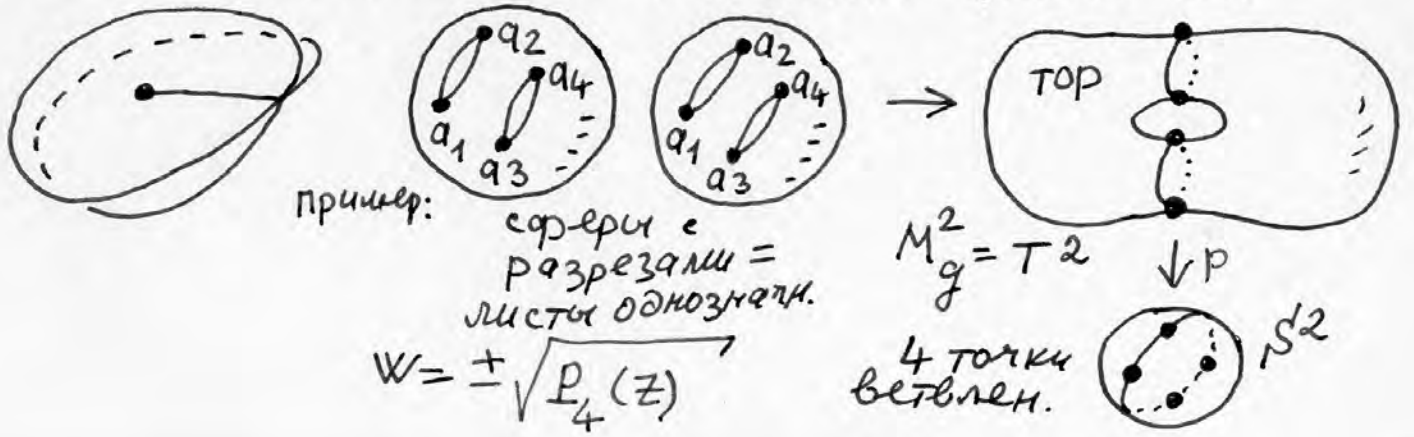 a2
a4
a1
a3
a2
a4
a1
a3
тор
пример:
сферы с
разрезами =
листы однозначн.
W = ± √P₄(z)
M²g = T²
p
4 точки
ветвлен.
S²